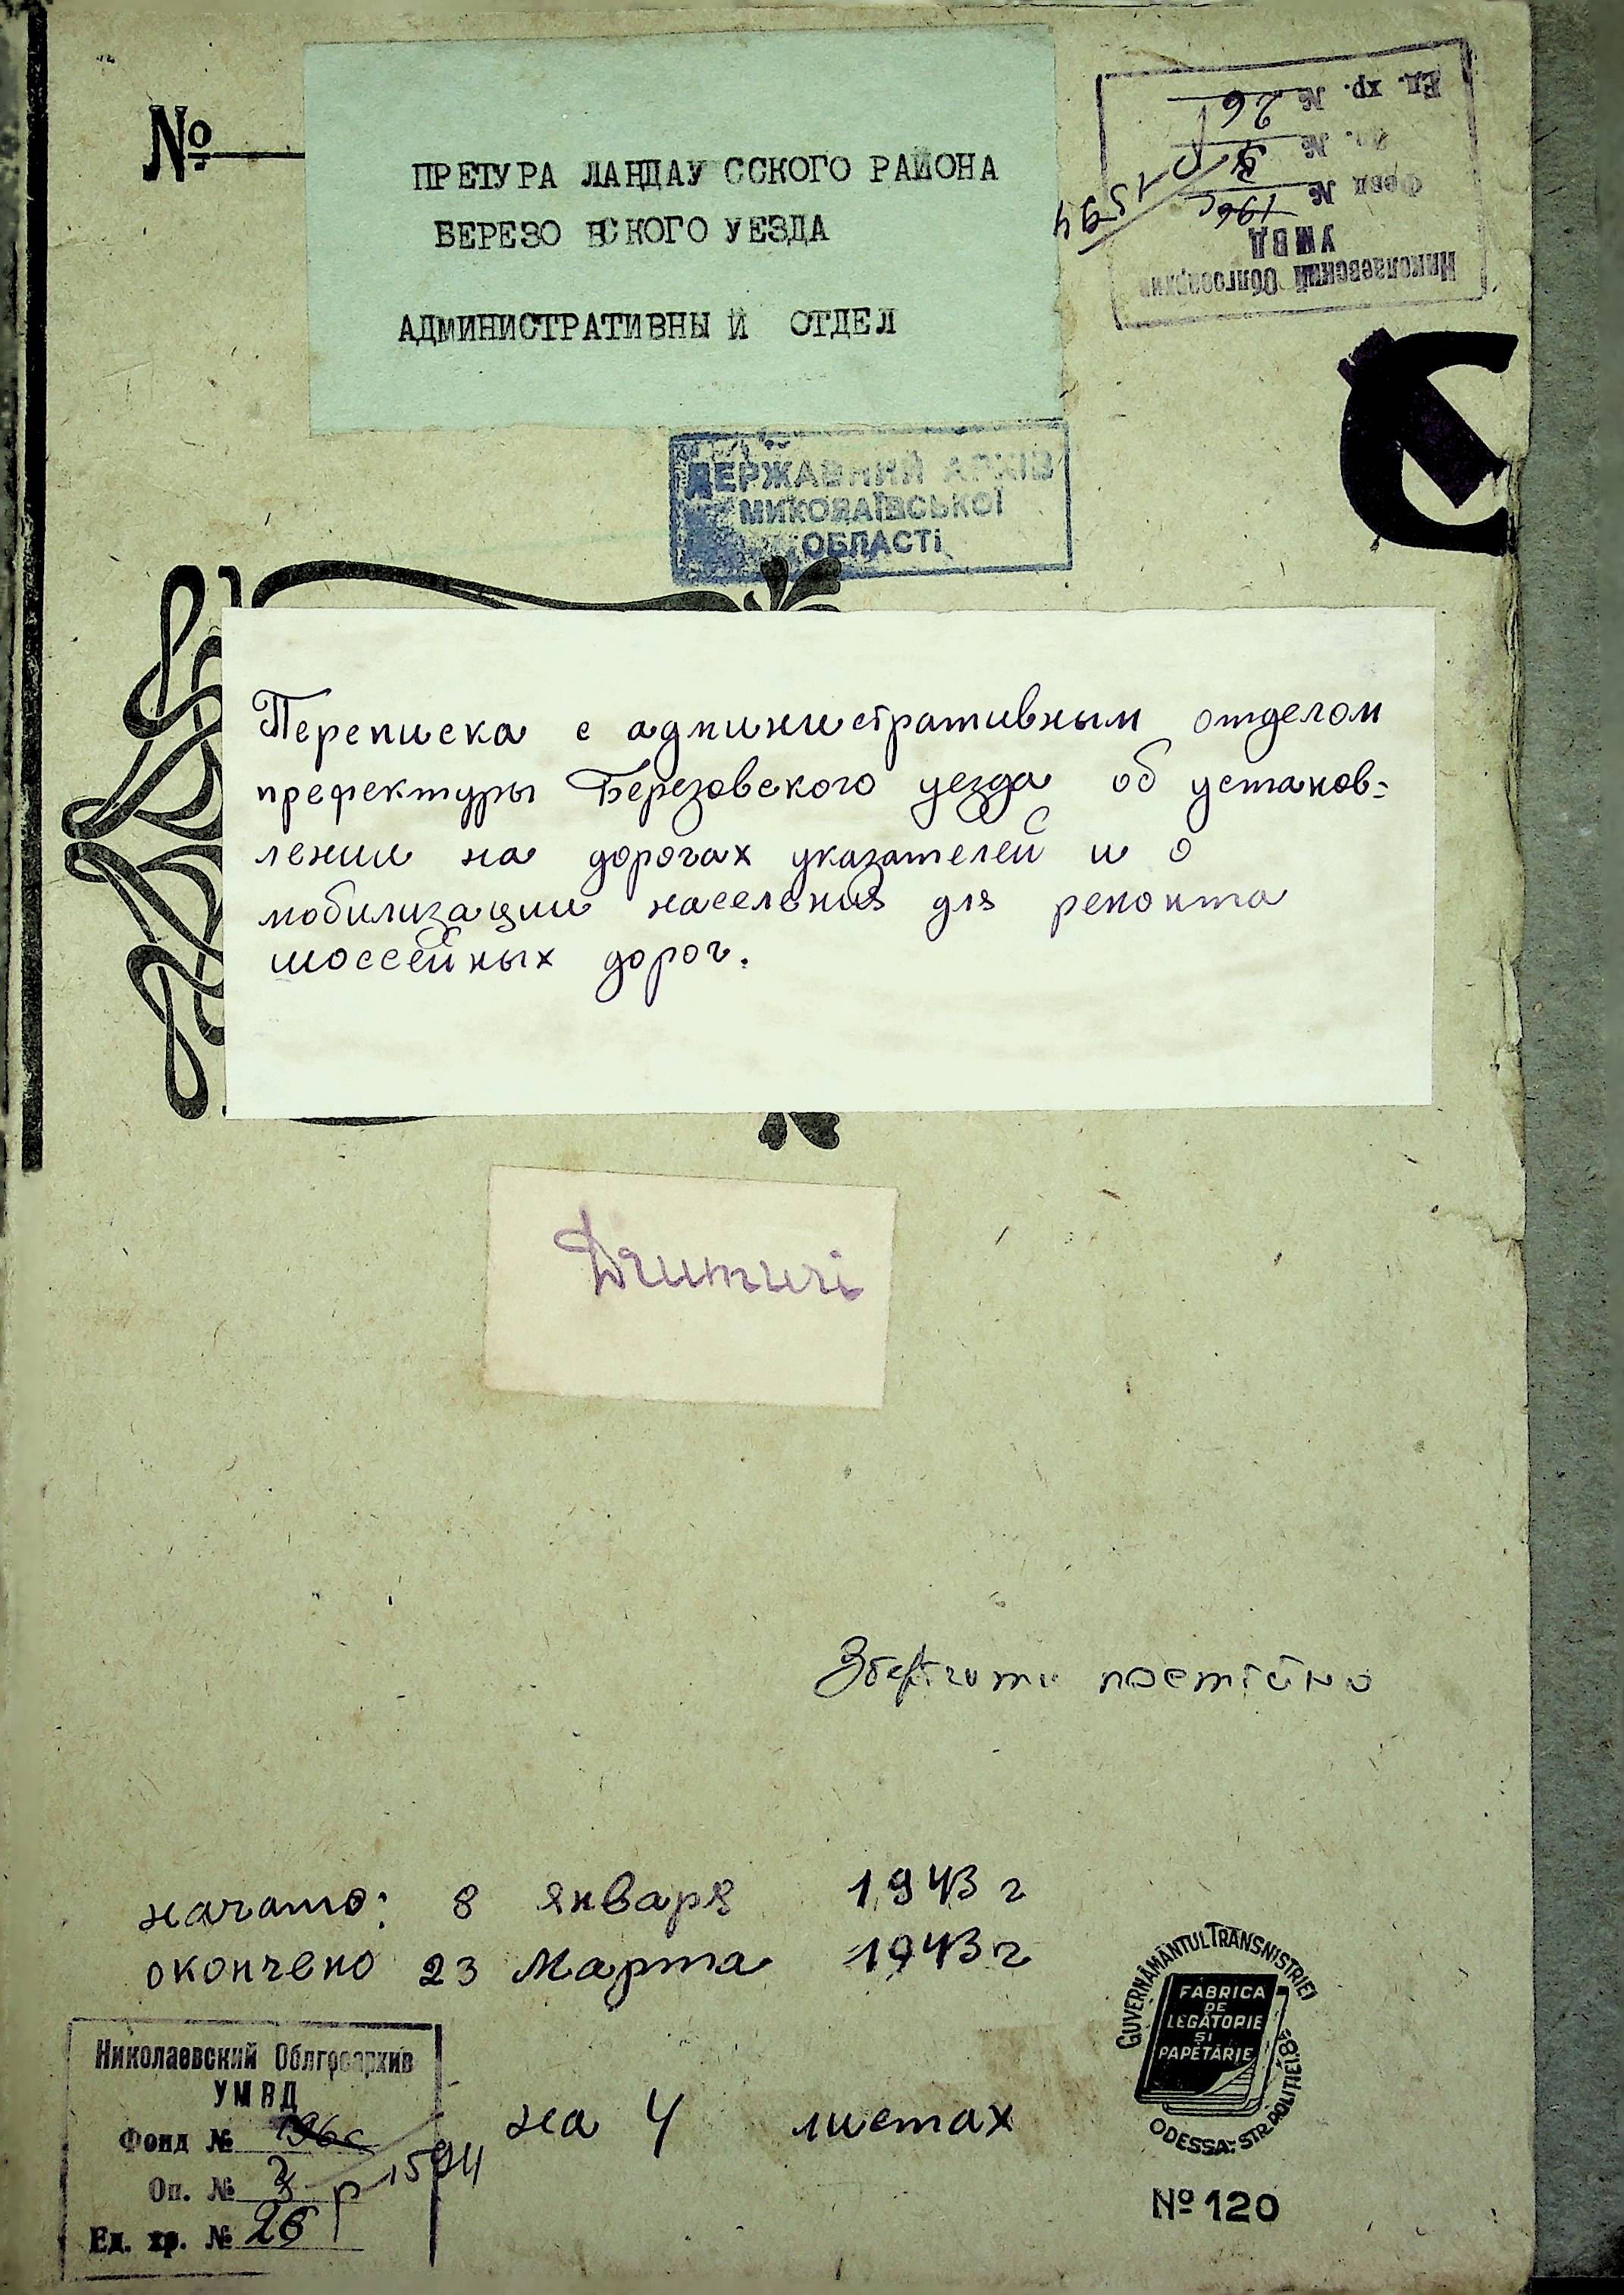 №
ПРЕТУРА ЛАНДАУ ССКОГО РАЙОНА
БЕРЕЗО ВСКОГО УЕЗДА
АДМИНИСТРАТИВНЫ Й ОТДЕЛ
Николаевский Облгосархив
УМВД
Фонд № 196с
Оп. № 3
Ед. хр. № 26
Р 1594
ДЕРЖАВНИЙ АРХІВ
МИКОЛАЇВСЬКОЇ
ОБЛАСТІ
Переписка с административным отделом
префектуры Березовского уезда об установ=
лении на дорогах указателей и о
мобилизации населения для ремонта
шоссейных дорог.
Drumuri
Зберігати постійно
начато: 8 января 1943 г
окончено 23 Марта 1943 г
на 4 листах
Николаевский Облгосархив
УМВД
Фонд № 196с
Оп. № 3 р 1594
Ед. хр. № 26
GUVERNĂMÂNTUL TRANSNISTRIEI
FABRICA
DE
LEGĂTORIE
ȘI
PAPETĂRIE
ODESSA: STR. POLIȚIEI
№ 120